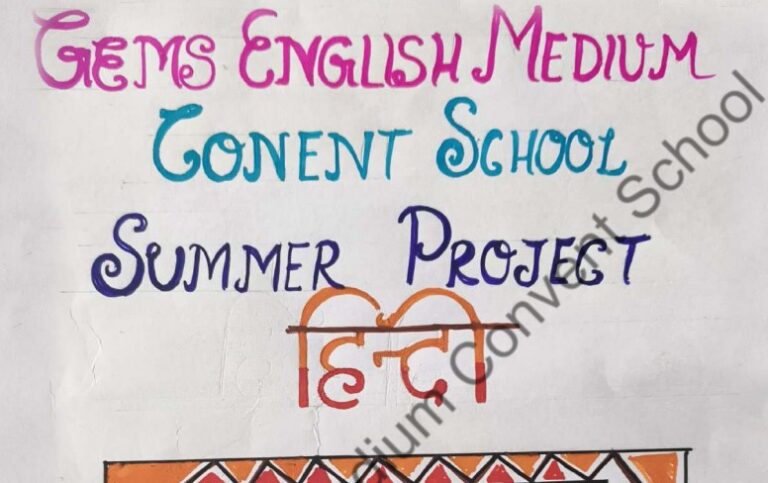 GEMS ENGLISH MEDIUM
CONENT SCHOOL
SUMMER PROJECT
हिन्दी
dium Convent School